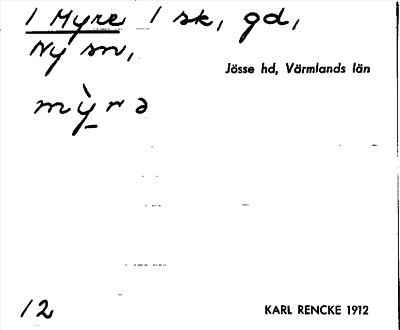 1 Myre 1 sk, gd,
Ny sn,
Jösse hd, Värmlands län
mỳ̠rə
12
KARL RENCKE 1912